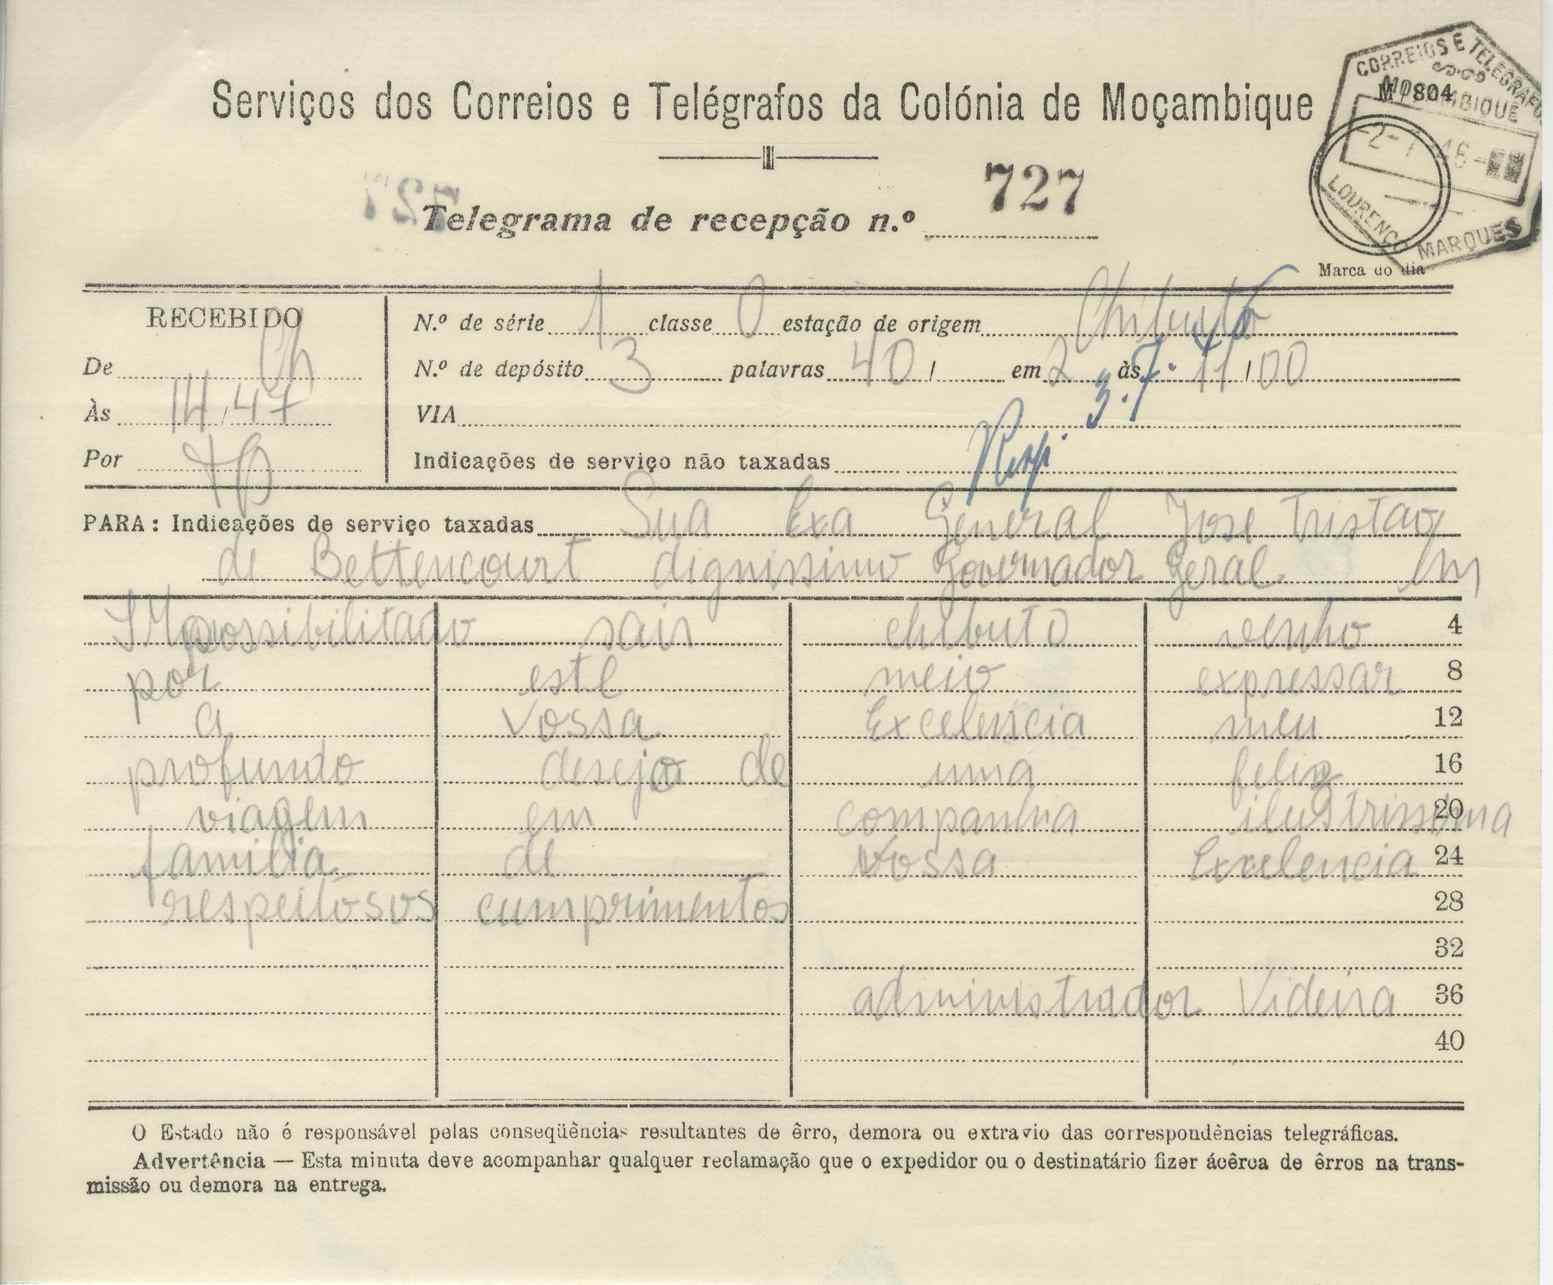 Serviços dos Correios e Telégrafos da Colónia de Moçambique
CORREIOS E TELÉGRAFOS
Nº804
MOÇAMBIQUE
LOURENÇO MARQUES
Telegrama de recepção n.º 727
Marca do dia
RECEBIDO
N.º de série 1 classe 0 estação de origem Chibuto
De Ch
N.º de depósito 3 palavras 40/ em 2 às 11/00
Às 14,47
VIA
3.7.46
Por
Indicações de serviço não taxadas
PARA: Indicações de serviço taxadas Sua Exa General Jose Tristao
de Bettencourt dignissimo Governador Geral Lm
IMpossibilitado sair chibuto venho 4
por este meio expressar 8
a vossa Excelencia meu 12
profundo desejo de uma feliz 16
viagem em companhia ilustrissima 20
familia de Vossa Excelencia 24
respeitosos cumprimentos 28
32
administrador Videira 36
40
O Estado não é responsável pelas conseqüências resultantes de êrro, demora ou extravio das correspondências telegráficas.
Advertência — Esta minuta deve acompanhar qualquer reclamação que o expedidor ou o destinatário fizer ácêrca de êrros na trans-
missão ou demora na entrega.